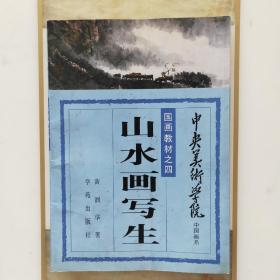 中央美術学院
中国画系
国画教材之四
山水画写生
黄润华著
学苑出版社